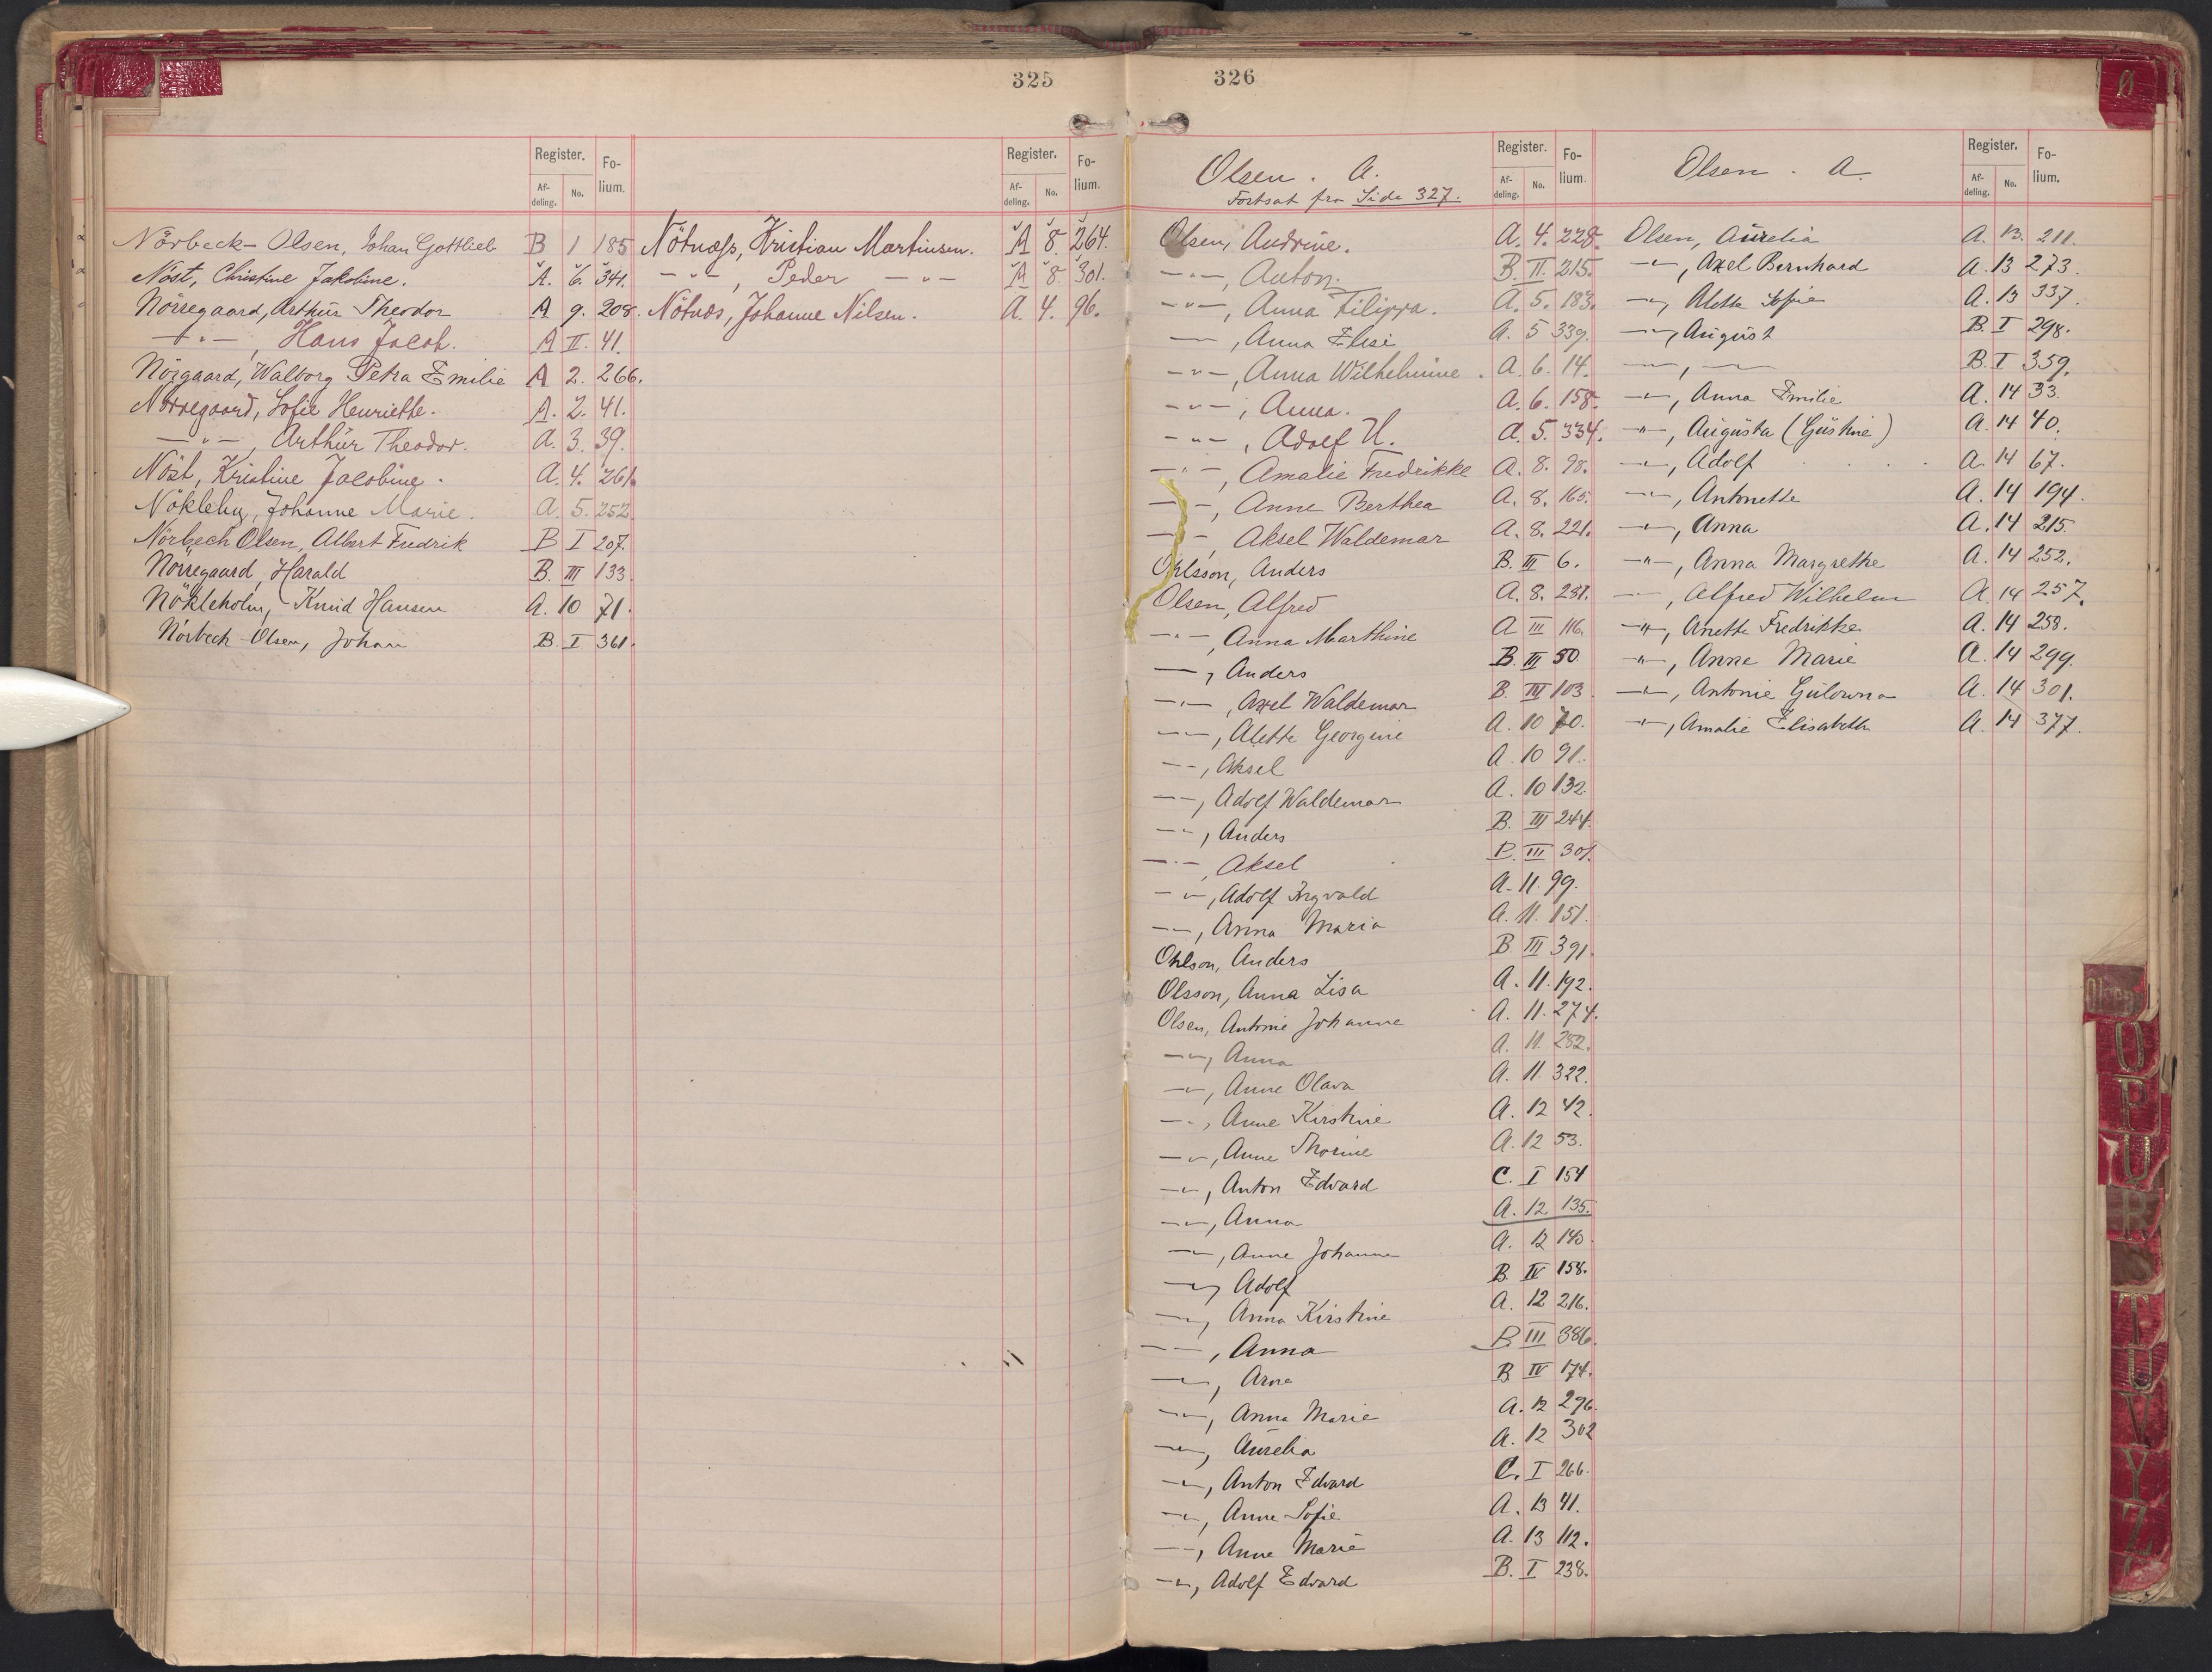 325
Register. Fo-
Af- No. lium.
deling.
Register. Fo-
Af- No. lium.
deling.
Nörbeck-Olsen, Johan Gottlieb B 1 185
Nöst, Christine Jakobine. A. 6. 341.
Nörregaard, Arthur Theodor A 9. 208.
—"—, Hans Jacob. A II. 41.
Nörgaard, Walborg Petra Emilie A 2. 266.
Nörregaard, Sofie Henriette. A. 2. 41.
—"—, Arthur Theodor. A. 3. 39.
Nöst, Kristine Jacobine. A. 4. 261.
Nökleby, Johanne Marie. A. 5. 252.
Nörbech Olsen, Albert Fredrik B I 207.
Nörregaard, Harald B. III 133
Nökleholm, Knud Hansen A. 10 71.
Nörbech-Olsen, Johan B. I 361.
Nötnæss, Kristian Martinsen. A 8. 264.
—"—, Peder —"— A 8. 301.
Nötnæs, Johanne Nilsen. A. 4. 96.
326
Olsen. A.
Fortsat fra Side 327.
Register. Fo-
Af- No. lium.
deling.
Olsen. A.
Register. Fo-
Af- No. lium.
deling.
Olsen, Andrine. A. 4. 228.
—"—, Anton. B. II. 215.
—"—, Anna Filippa. A. 5. 183.
—, Anna Elise A. 5 339.
—"—, Anna Wilhelmine. A. 6. 14.
—"—, Anna. A. 6. 158.
—"—, Adolf H. A. 5. 334.
—"—, Amalie Fredrikke A. 8. 98.
—"—, Anne Berthea A. 8. 165.
—"—, Aksel Waldemar A. 8. 221.
Ohlsson, Anders B. III 6.
Olsen, Alfred A. 8. 281.
—"—, Anna Marthine A III 116.
—, Anders B. III 50
—"—, Axel Waldemar B. III 103
—"—, Alette Georgine A. 10 70.
—"—, Aksel A. 10 91.
—"—, Adolf Waldemar A. 10 132
—"—, Anders B. III 244.
—"—, Aksel B. III 301.
—"—, Adolf Ingvald A. 11. 99.
—"—, Anna Maria A. 11. 151.
Ohlson, Anders B III 391
Olsson, Anna Lisa A. 11. 192.
Olsen, Antonie Johanne A. 11. 274.
—"—, Anna A. 11. 282.
—"—, Anne Olava A. 11 322.
—"—, Anne Kirstine A. 12 42.
—"—, Anne Thorine A. 12 53.
—"—, Anton Edvard C. I 154
—"—, Anna A. 12 135.
—"—, Anne Johanne A. 12 145
—"—, Adolf B. IV 158.
—"—, Anna Kirstine A. 12 216.
—"—, Anna B. III 386.
—"—, Arne B. IV 174.
—"—, Anna Marie A. 12 296.
—"—, Aurelia A. 12 302
—"—, Anton Edvard C. I 266.
—"—, Anne Sofie A. 13 41.
—"—, Anne Marie A. 13 112.
—"—, Adolf Edvard B. I 238.
Olsen, Aurelia A. 13. 211.
—"—, Axel Bernhard A. 13 273.
—"—, Alette Sofie A. 13 337.
—"—, August B. I 298.
—"—, —"— B. I 359.
—"—, Anna Emilie A. 14 33.
—"—, Augusta (Gustine) A. 14 40.
—"—, Adolf A. 14 67.
—"—, Antonette A. 14 194.
—"—, Anna A. 14 215.
—"—, Anna Margrethe A. 14 252.
—"—, Alfred Wilhelm A. 14 257.
—"—, Anette Fredrikke A. 14 258.
—"—, Anne Marie A. 14 299.
—"—, Antonie Gulowna A. 14 301.
—"—, Amalie Elisabeth A. 14 377.
Ø
Olsen
O
P
U
R
S
T
U
V
Y
Z